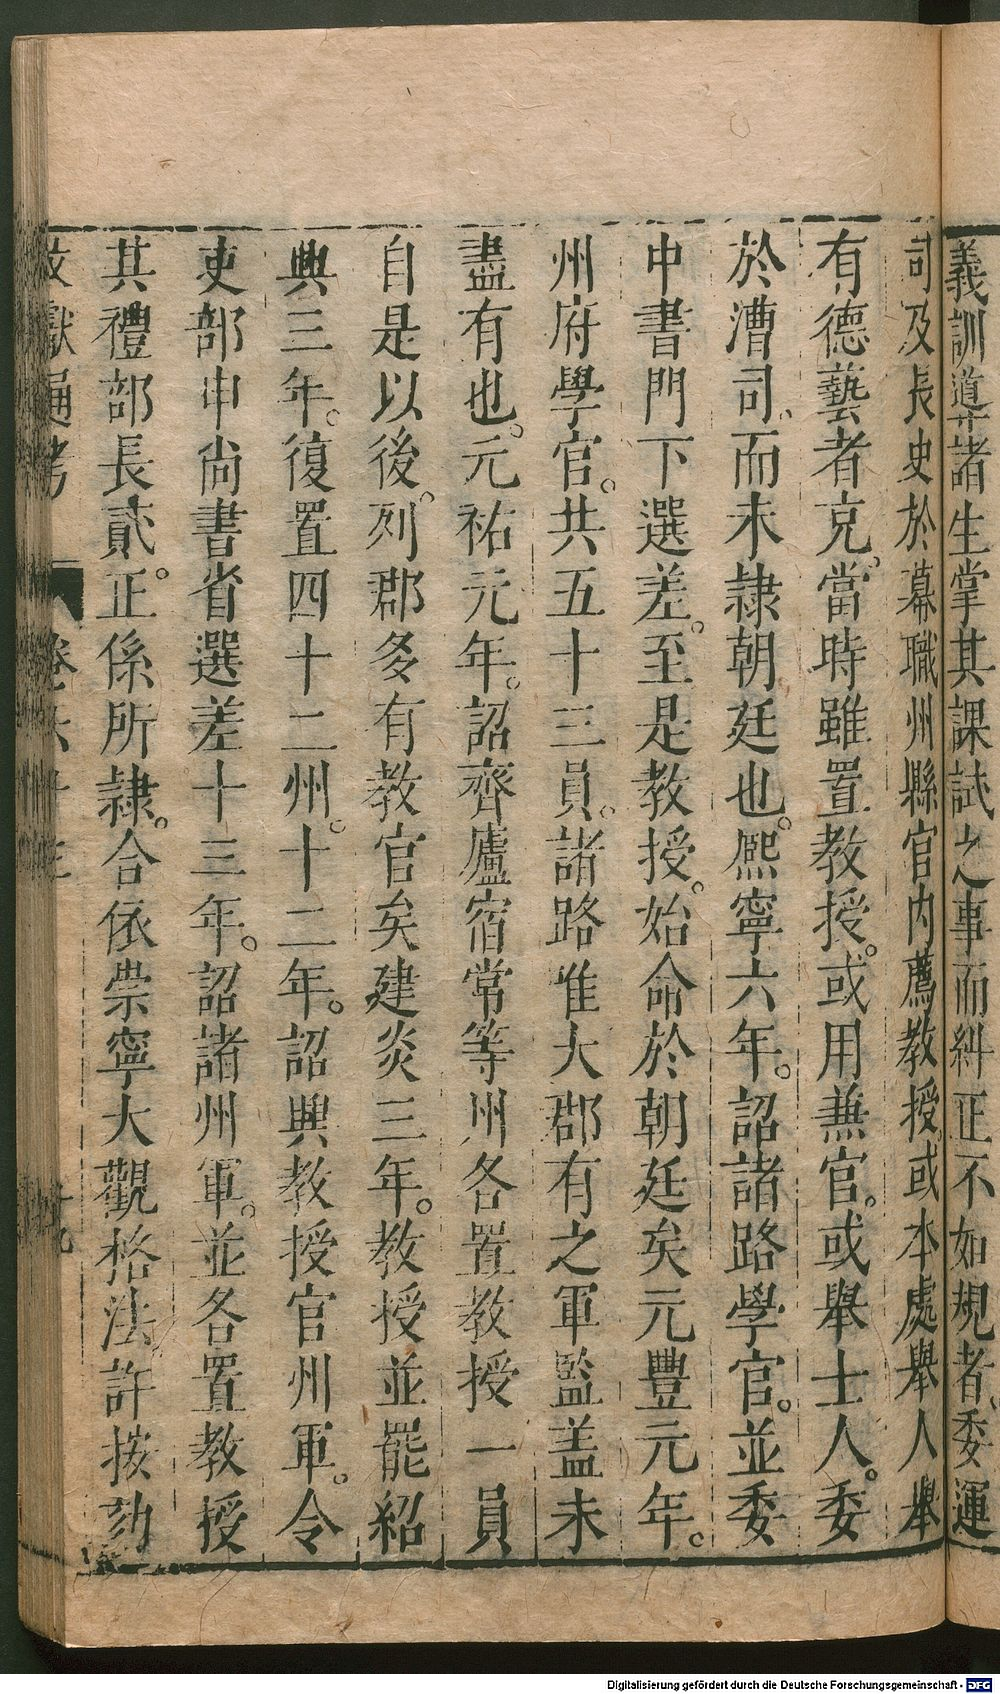 義訓導諸生掌其課試之事而糾正不如規者委運
司及長史於幕職州縣官內薦教授或本處舉人舉
有德藝者充當時雖置教授或用兼官或舉士人委
於漕司而未隸朝廷也熈寧六年詔諸路學官並委
中書門下選差至是教授始命於朝廷矣元豐元年
州府學官共五十三員諸路惟大郡有之軍監盖未
盡有也元祐元年詔齊廬宿常等州各置教授一員
自是以後列郡多有教官矣建炎三年教授並罷紹
興三年復置四十二州十二年詔興教授官州軍令
吏部申尚書省選差十三年詔諸州軍並各置教授
其禮部長貳正係所隸合依崇寧大觀格法許按劾
獻通考 卷六十三
Digitalisierung gefördert durch die Deutsche Forschungsgemeinschaft - DFG